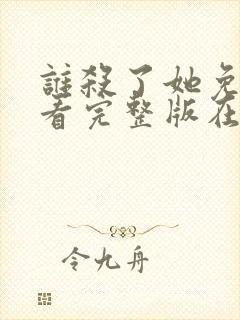 誰殺了她免
看完整版在
令九舟